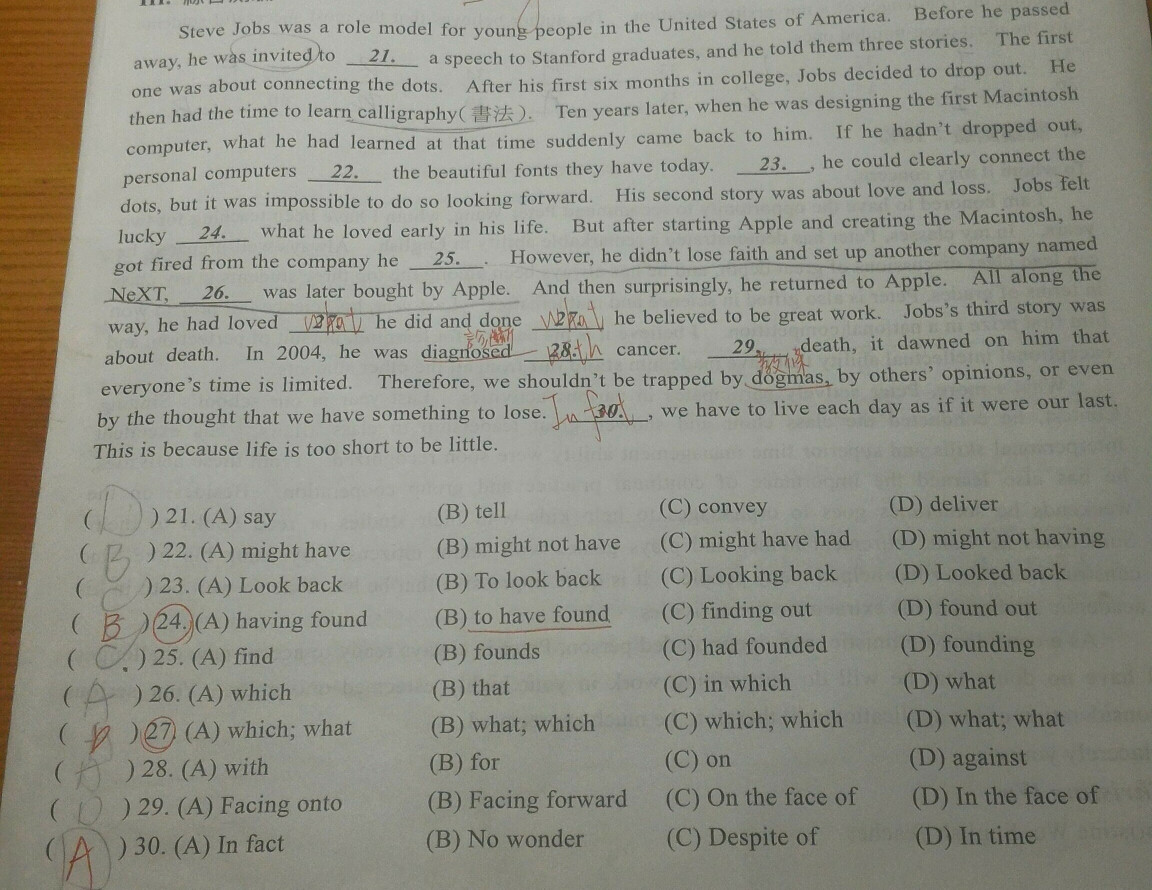 Steve Jobs was a role model for young people in the United States of America. Before he passed
away, he was invited to 21. a speech to Stanford graduates, and he told them three stories. The first
one was about connecting the dots. After his first six months in college, Jobs decided to drop out. He
then had the time to learn calligraphy(書法). Ten years later, when he was designing the first Macintosh
computer, what he had learned at that time suddenly came back to him. If he hadn't dropped out,
personal computers 22. the beautiful fonts they have today. 23. , he could clearly connect the
dots, but it was impossible to do so looking forward. His second story was about love and loss. Jobs felt
lucky 24. what he loved early in his life. But after starting Apple and creating the Macintosh, he
got fired from the company he 25. . However, he didn't lose faith and set up another company named
NeXT, 26. was later bought by Apple. And then surprisingly, he returned to Apple. All along the
way, he had loved 27. what he did and done 27. what he believed to be great work. Jobs's third story was
診斷
about death. In 2004, he was diagnosed 28. with cancer. 29. death, it dawned on him that
教條
everyone's time is limited. Therefore, we shouldn't be trapped by dogmas, by others' opinions, or even
by the thought that we have something to lose. 30. In fact, we have to live each day as if it were our last.
This is because life is too short to be little.
( D ) 21. (A) say (B) tell (C) convey (D) deliver
( B ) 22. (A) might have (B) might not have (C) might have had (D) might not having
( C ) 23. (A) Look back (B) To look back (C) Looking back (D) Looked back
( B ) 24. (A) having found (B) to have found (C) finding out (D) found out
( C. ) 25. (A) find (B) founds (C) had founded (D) founding
( A ) 26. (A) which (B) that (C) in which (D) what
( D ) 27. (A) which; what (B) what; which (C) which; which (D) what; what
( A ) 28. (A) with (B) for (C) on (D) against
( D ) 29. (A) Facing onto (B) Facing forward (C) On the face of (D) In the face of
( A ) 30. (A) In fact (B) No wonder (C) Despite of (D) In time